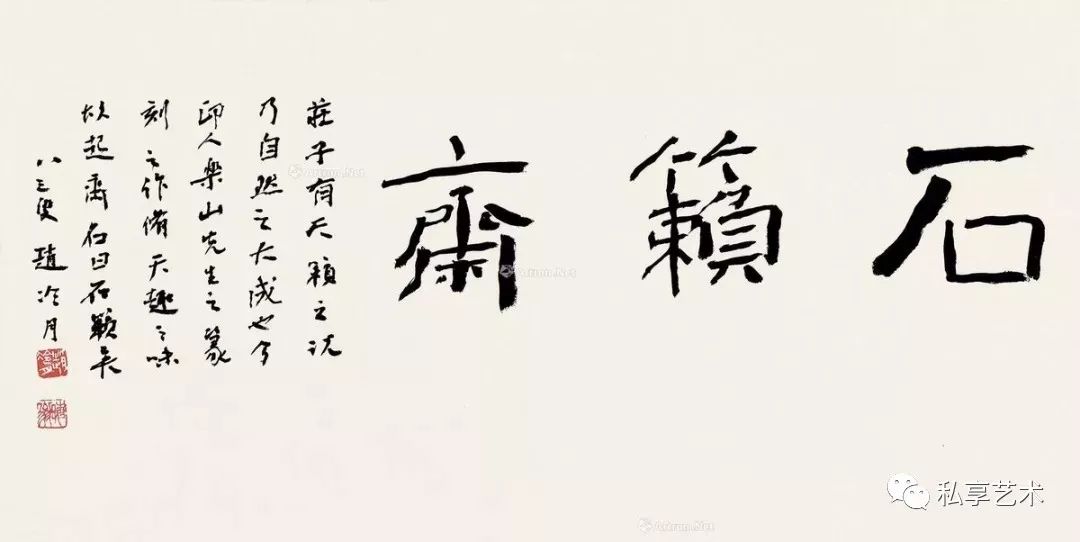 石籟齋
莊子有天籟之説
乃自然之大成也今
印人樂山先生之篆
刻之作備天趣之味
故起齋名曰石籟矣
八三叟 趙冷月
Artron.Net
Artron.Net
Artron.Net
私享艺术